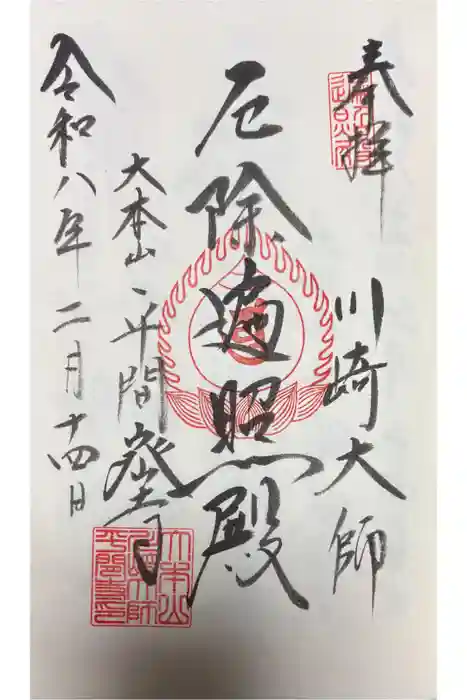 奉拝
川崎大師
厄除遍照殿
大本山 平間寺
令和八年二月十四日